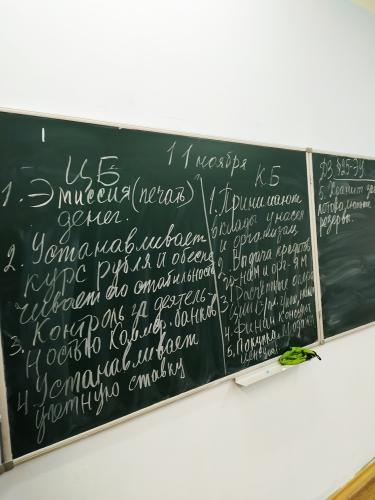 11 ноября
ЦБ
1. Эмиссия (печать)
денег.
2. Устанавливает
курс рубля и обеспе
чивает его стабильность
3. Контроль за деятель
ностью Коммер. банков
4. Устанавливает
учётную ставку
КБ
1. Принимают
вклады у насел
и организац
2. Выдача кредитов
3.
4. Финан консул
5. Покупка
ДЗ §25-ЭУ
6. Хранит
резерва.